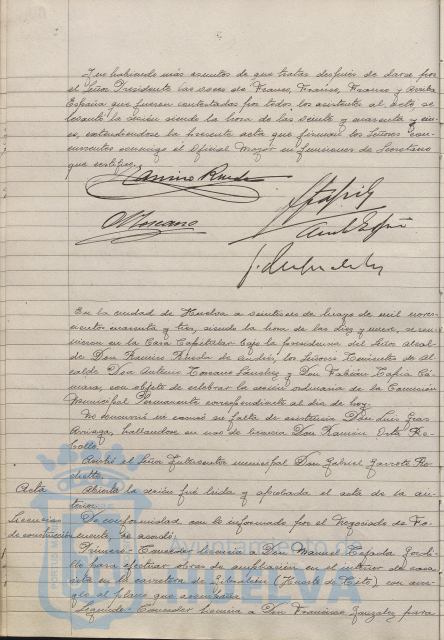 No habiendo más asuntos de que tratar después de darse por
el Señor Presidente las voces de Franco, Franco, Franco y Arriba
España que fueron contestadas por todos los asistentes al acto, se
levantó la sesión siendo la hora de las veinte y cuarenta y cin-
co, extendiéndose la presente acta que firman los Señores con-
currentes conmigo el Oficial Mayor en funciones de Secretario
que certifico.
Ramiro Rueda
A Moscano
En la ciudad de Huelva a veintiseis de Mayo de mil nove-
cientos cuarenta y tres, siendo la hora de las diez y nueve, se reu-
nieron en la Casa Capitular bajo la presidencia del Señor Alcal-
de Don Ramiro Rueda de Andrés, los Señores Tenientes de Al-
calde Don Antonio Sánchez y Don Fabián Tapia Cá-
mara, con objeto de celebrar la sesión ordinaria de la Comisión
Municipal Permanente correspondiente al día de hoy.
No concurrió ni excusó su falta de asistencia Don Luis
Arriaga, hallándose en uso de licencia Don Ramón Orta Re-
bollo.
Asistió el Señor Interventor municipal Don Gabriel Garrote
Acta Abierta la sesión fué leída y aprobada el acta de la an-
terior.
Licencias De conformidad con lo informado por el Negociado de Fo-
de construcción mento, se acordó:
Primero- Conceder licencia a Don Manuel Tejada
para efectuar obras de ampliación en el interior de casa
sita en la carretera de Gibraleón (Huerto de Tito) con arre-
glo al plano que acompaña.
Segundo- Conceder licencia a Don Francisco González para
Ayuntamiento de
HUELVA